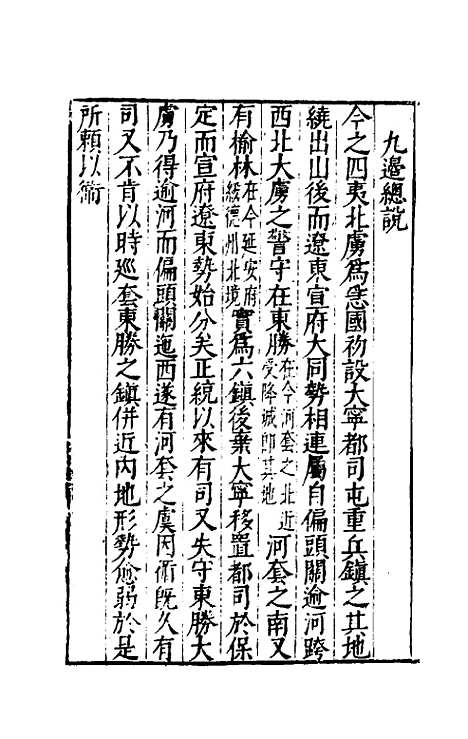 九邊總說
今之四夷北虜爲急國初設大寧都司屯重兵鎮之其地
繞出山後而遼東宣府大同勢相連屬自偏頭關逾河跨
西北大虜之警守在東勝在今河套之北近受降城即其地河套之南又
有榆林在今延安府綏德州北境實爲六鎮後棄大寧移置都司於保
定而宣府遼東勢始分矣正統以來有司又失守東勝大
虜乃得逾河而偏頭關迤西遂有河套之虞因循既久有
司又不肯以時廵套東勝之鎮併近內地形勢愈弱於是
所賴以衛